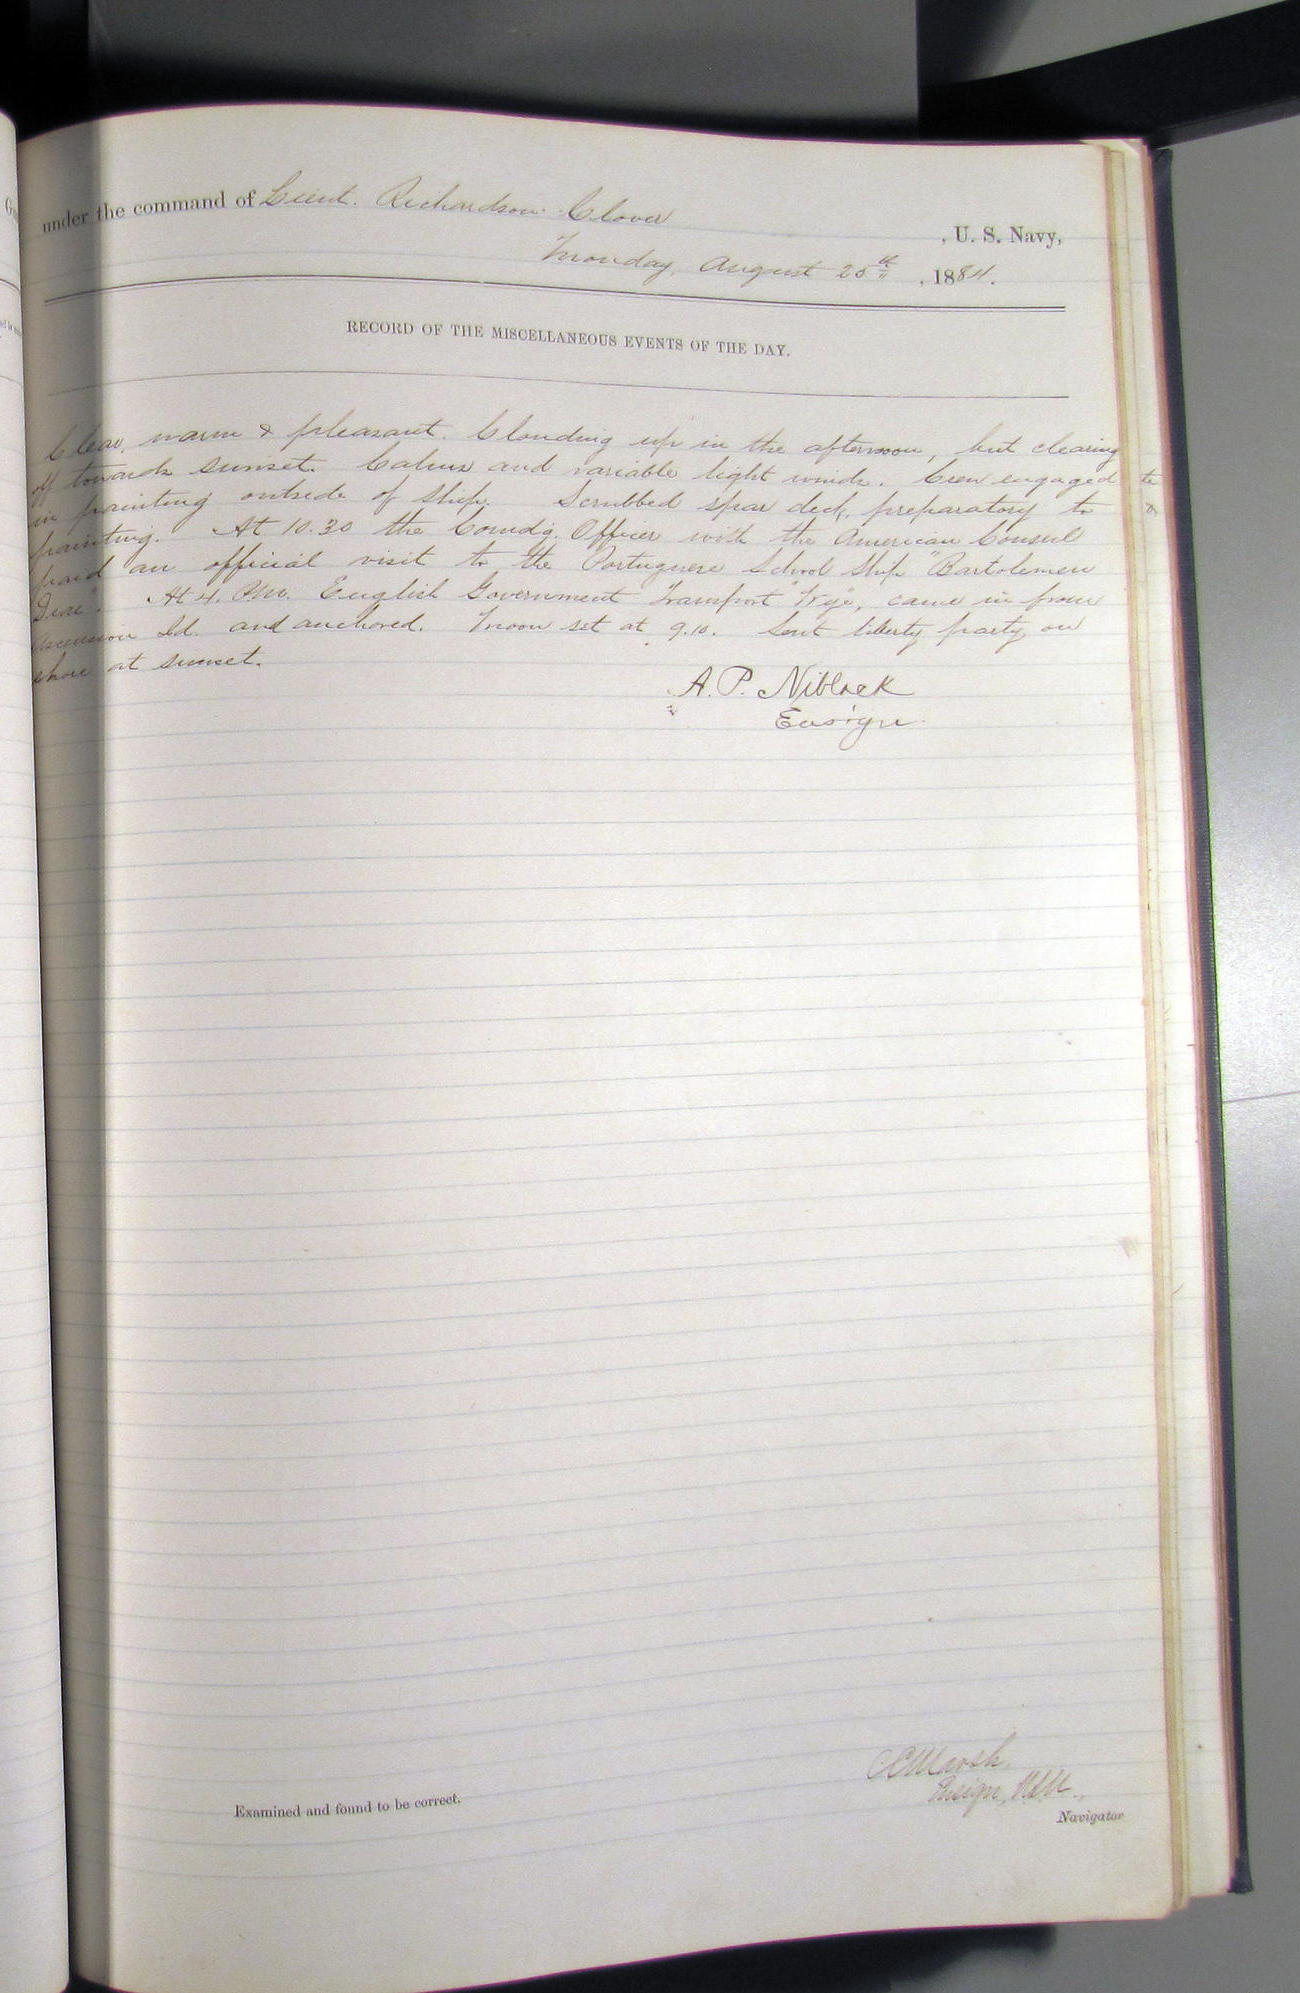 under the command of Lieut. Richardson Clover
, U. S. Navy,
Monday, August 25th , 1884.
RECORD OF THE MISCELLANEOUS EVENTS OF THE DAY.
Clear, warm & pleasant. Clouding up in the afternoon, but clearing
off towards sunset. Calms and variable light winds. Crew engaged
in painting outside of ship. Scrubbed spar deck, preparatory to
painting. At 10.30 the Comdg. Officer with the American Consul
paid an official visit to the Portuguese School Ship "Bartolemeu
Dias". At 4. P.M. English Government Transport "Wye", came in from
Ascension Id. and anchored. Moon set at 9.10. Sent liberty party on
shore at sunset.
A. P. Niblack
Ensign.
C.C. Marsh,
Ensign, U.S.N.,
Examined and found to be correct.
Navigator